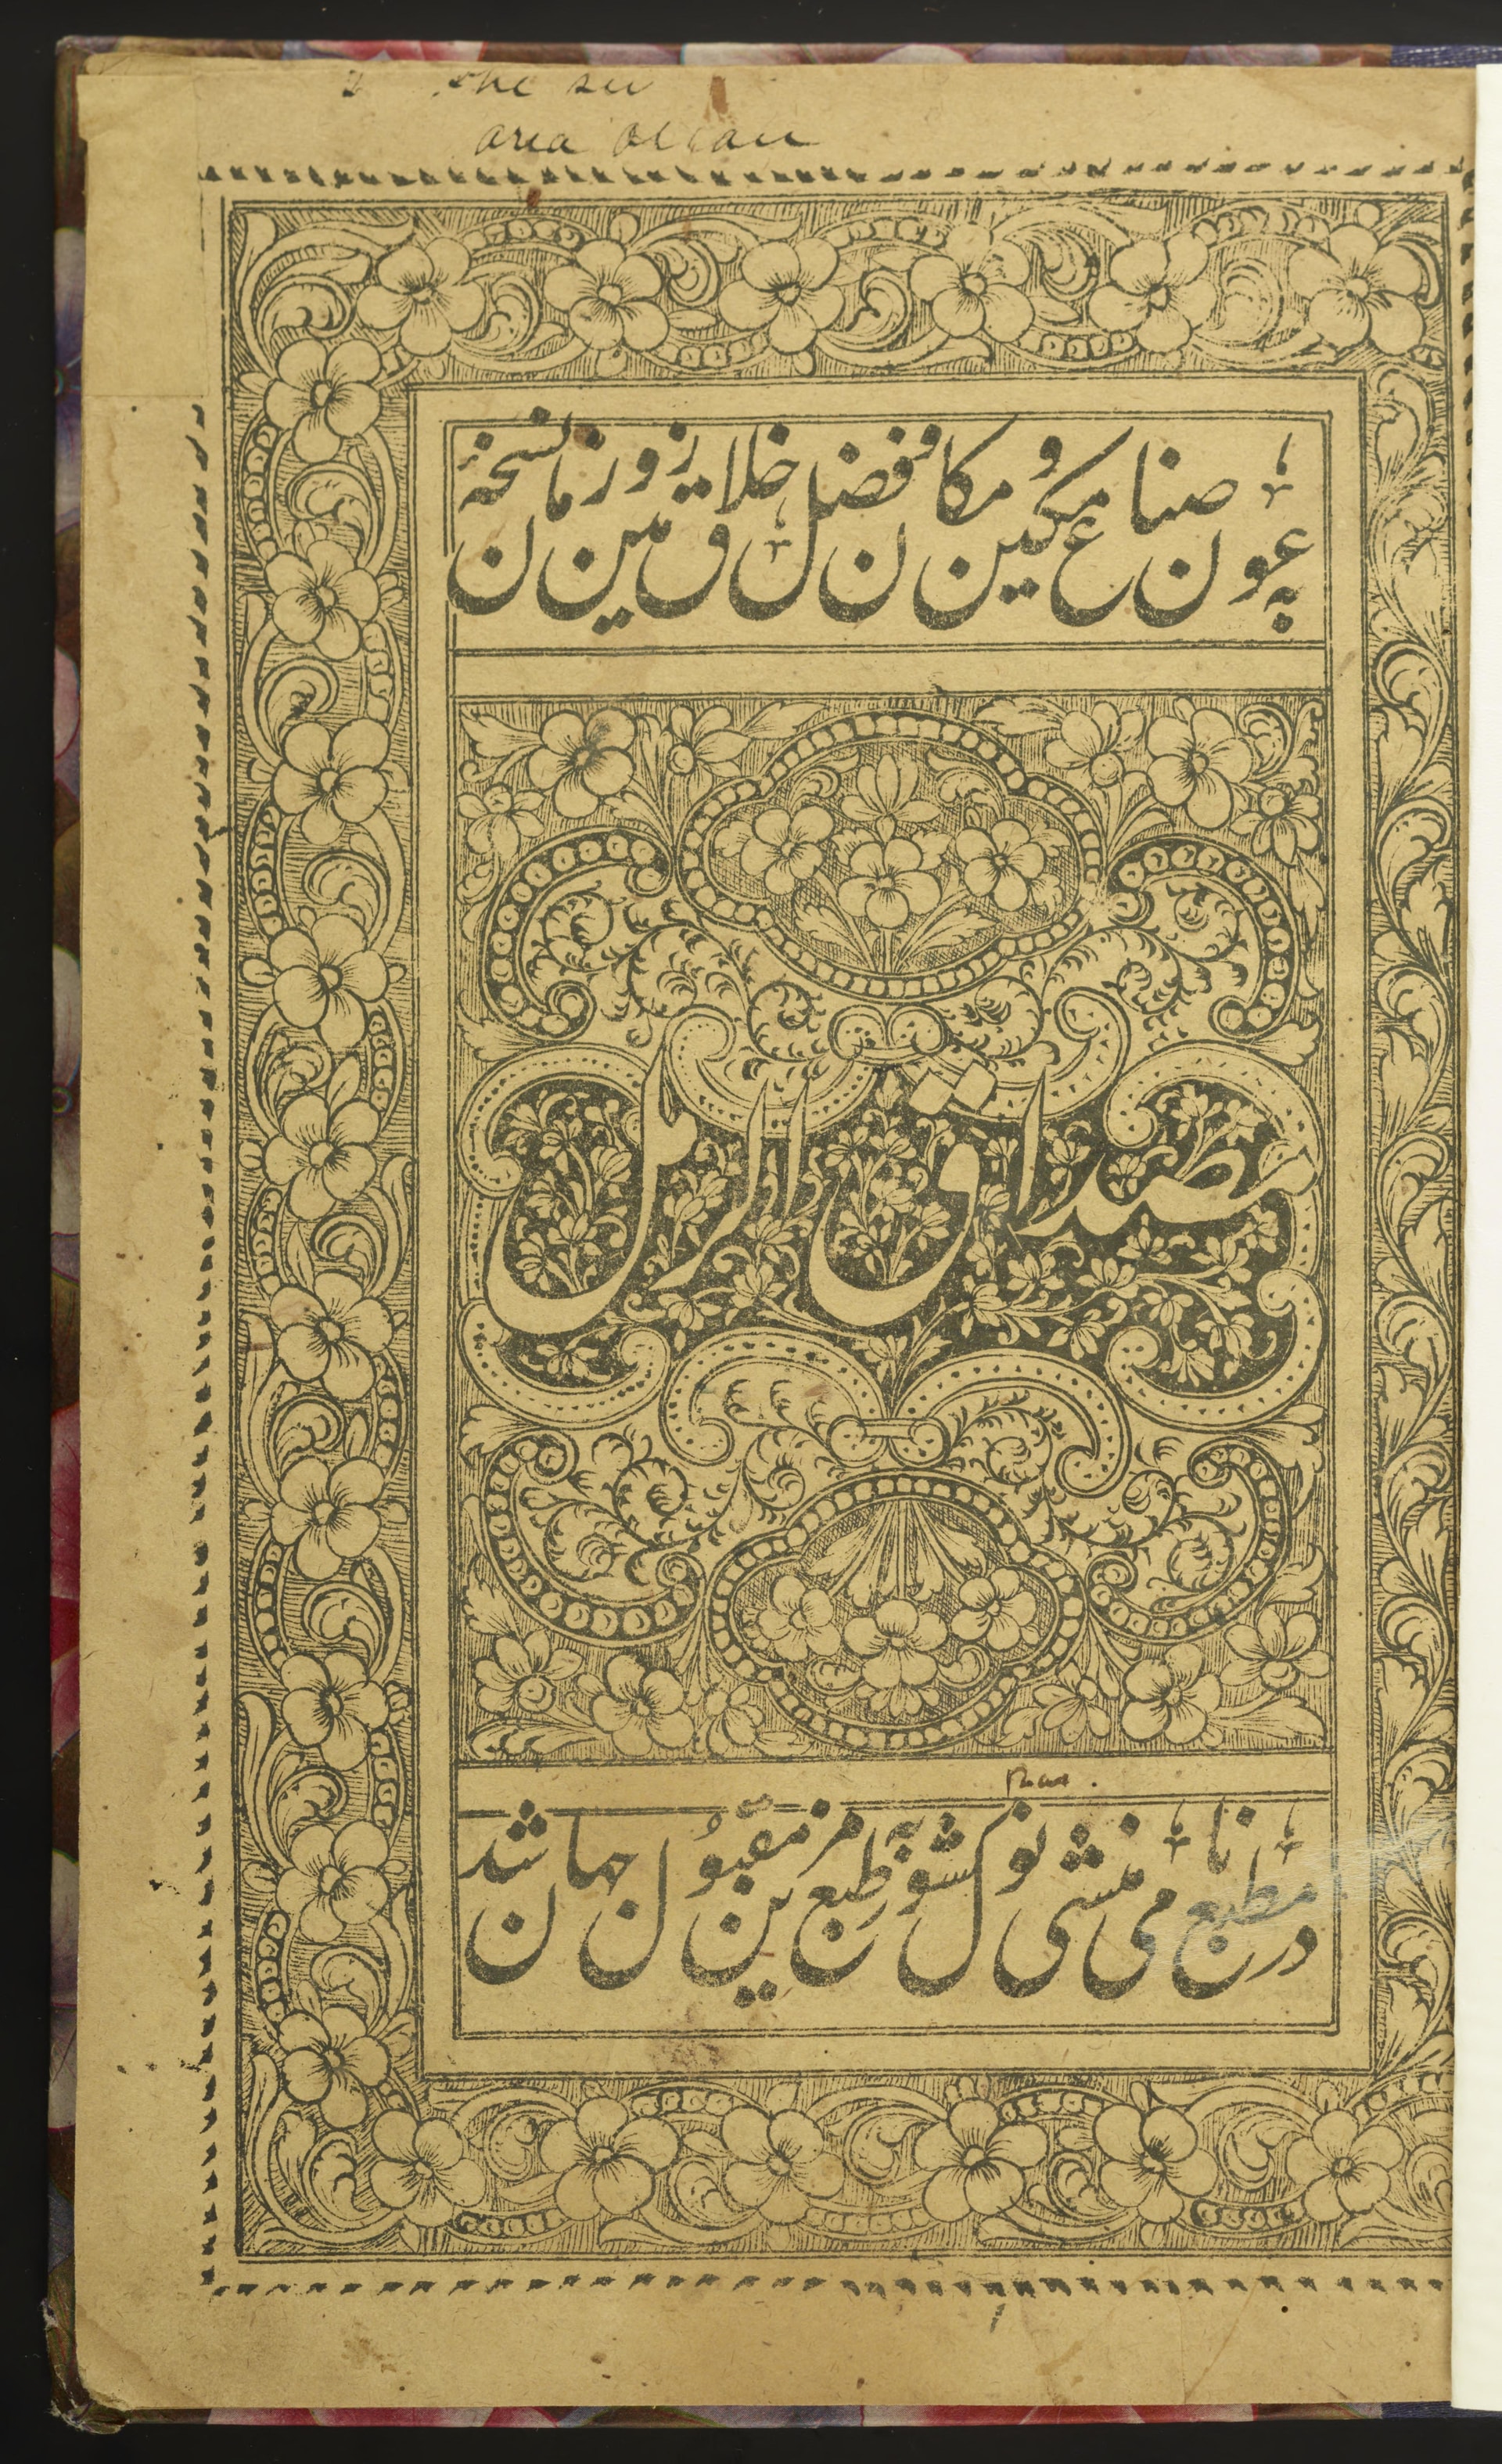 area
بعون صناع مکین و مکان و فضل خلاق زمین و زمان نسخهٔ
مصداق الرمل
در مطبع نامی منشی نولکشور بطبع مزین مقبول جهان شد